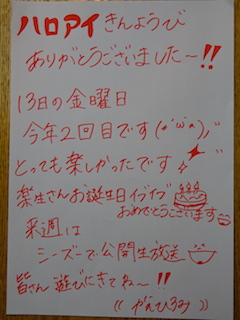 ハロアイきんようび
ありがとうございました〜!!
13日の金曜日
今年2回目です(*'ω'*)ﾉ"
とっても楽しかったです
楽生さんお誕生日イブイブ
おめでとうございます
来週は
シーズーで公開生放送
皆さん遊びにきてね〜!!